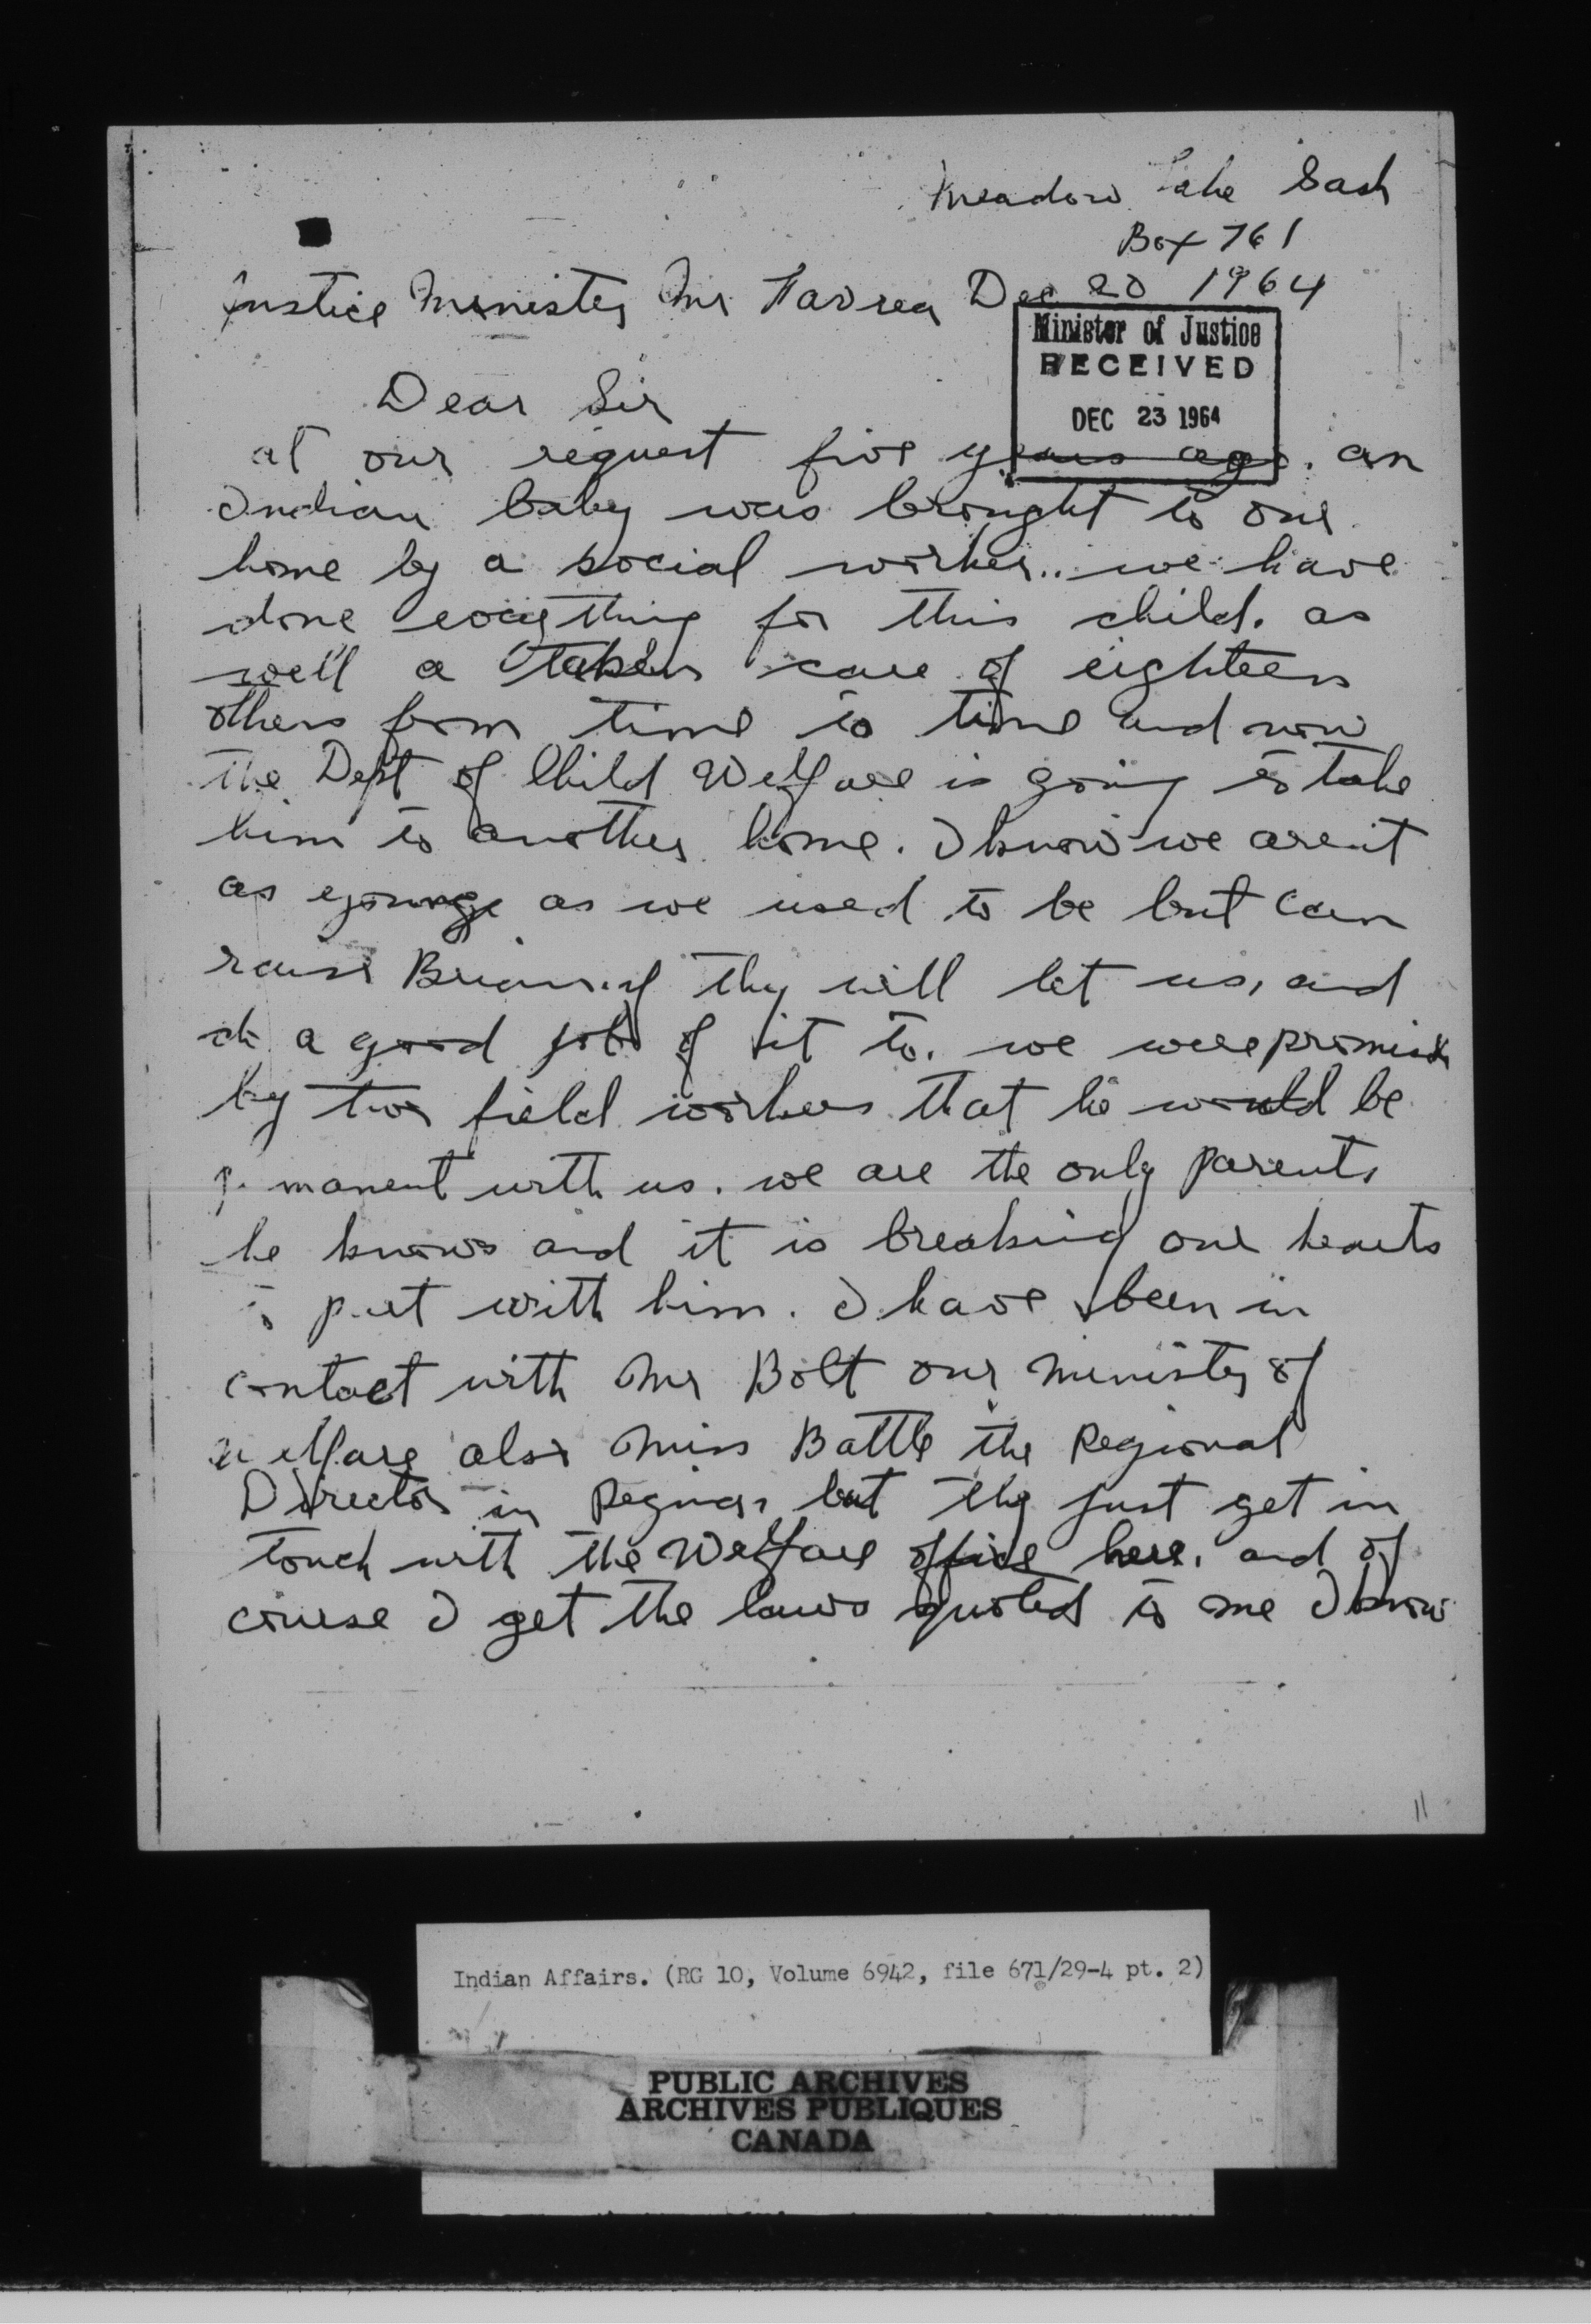 Meadow Lake Sask
Box 761
Justice Minister Mr Favrea Dec 20 1964
Minister of Justice
RECEIVED
DEC 23 1964
Dear Sir
at our request five years ago. an
Indian baby was brought to our
home by a social worker.. we have
done everything for this child. as
well a taken care of eighteen
others from time to time and now
the Dept of Child Welfare is going to take
him to another home. I know we aren't
as younge as we used to be but can
raise Brian if they will let us, and
do a good job of it to. we were promised
by two field workers that he would be
permanent with us. we are the only parents
he knows and it is breaking our hearts
to part with him. I have been in
contact with Mr Bolt our minister of
welfare also Miss Battle the Regional
Director in Regina, but they just get in
touch with the Welfare office here. and of
course I get the laws quoted to me I know
11
Indian Affairs. (RG 10, Volume 6942, file 671/29-4 pt. 2)
PUBLIC ARCHIVES
ARCHIVES PUBLIQUES
CANADA